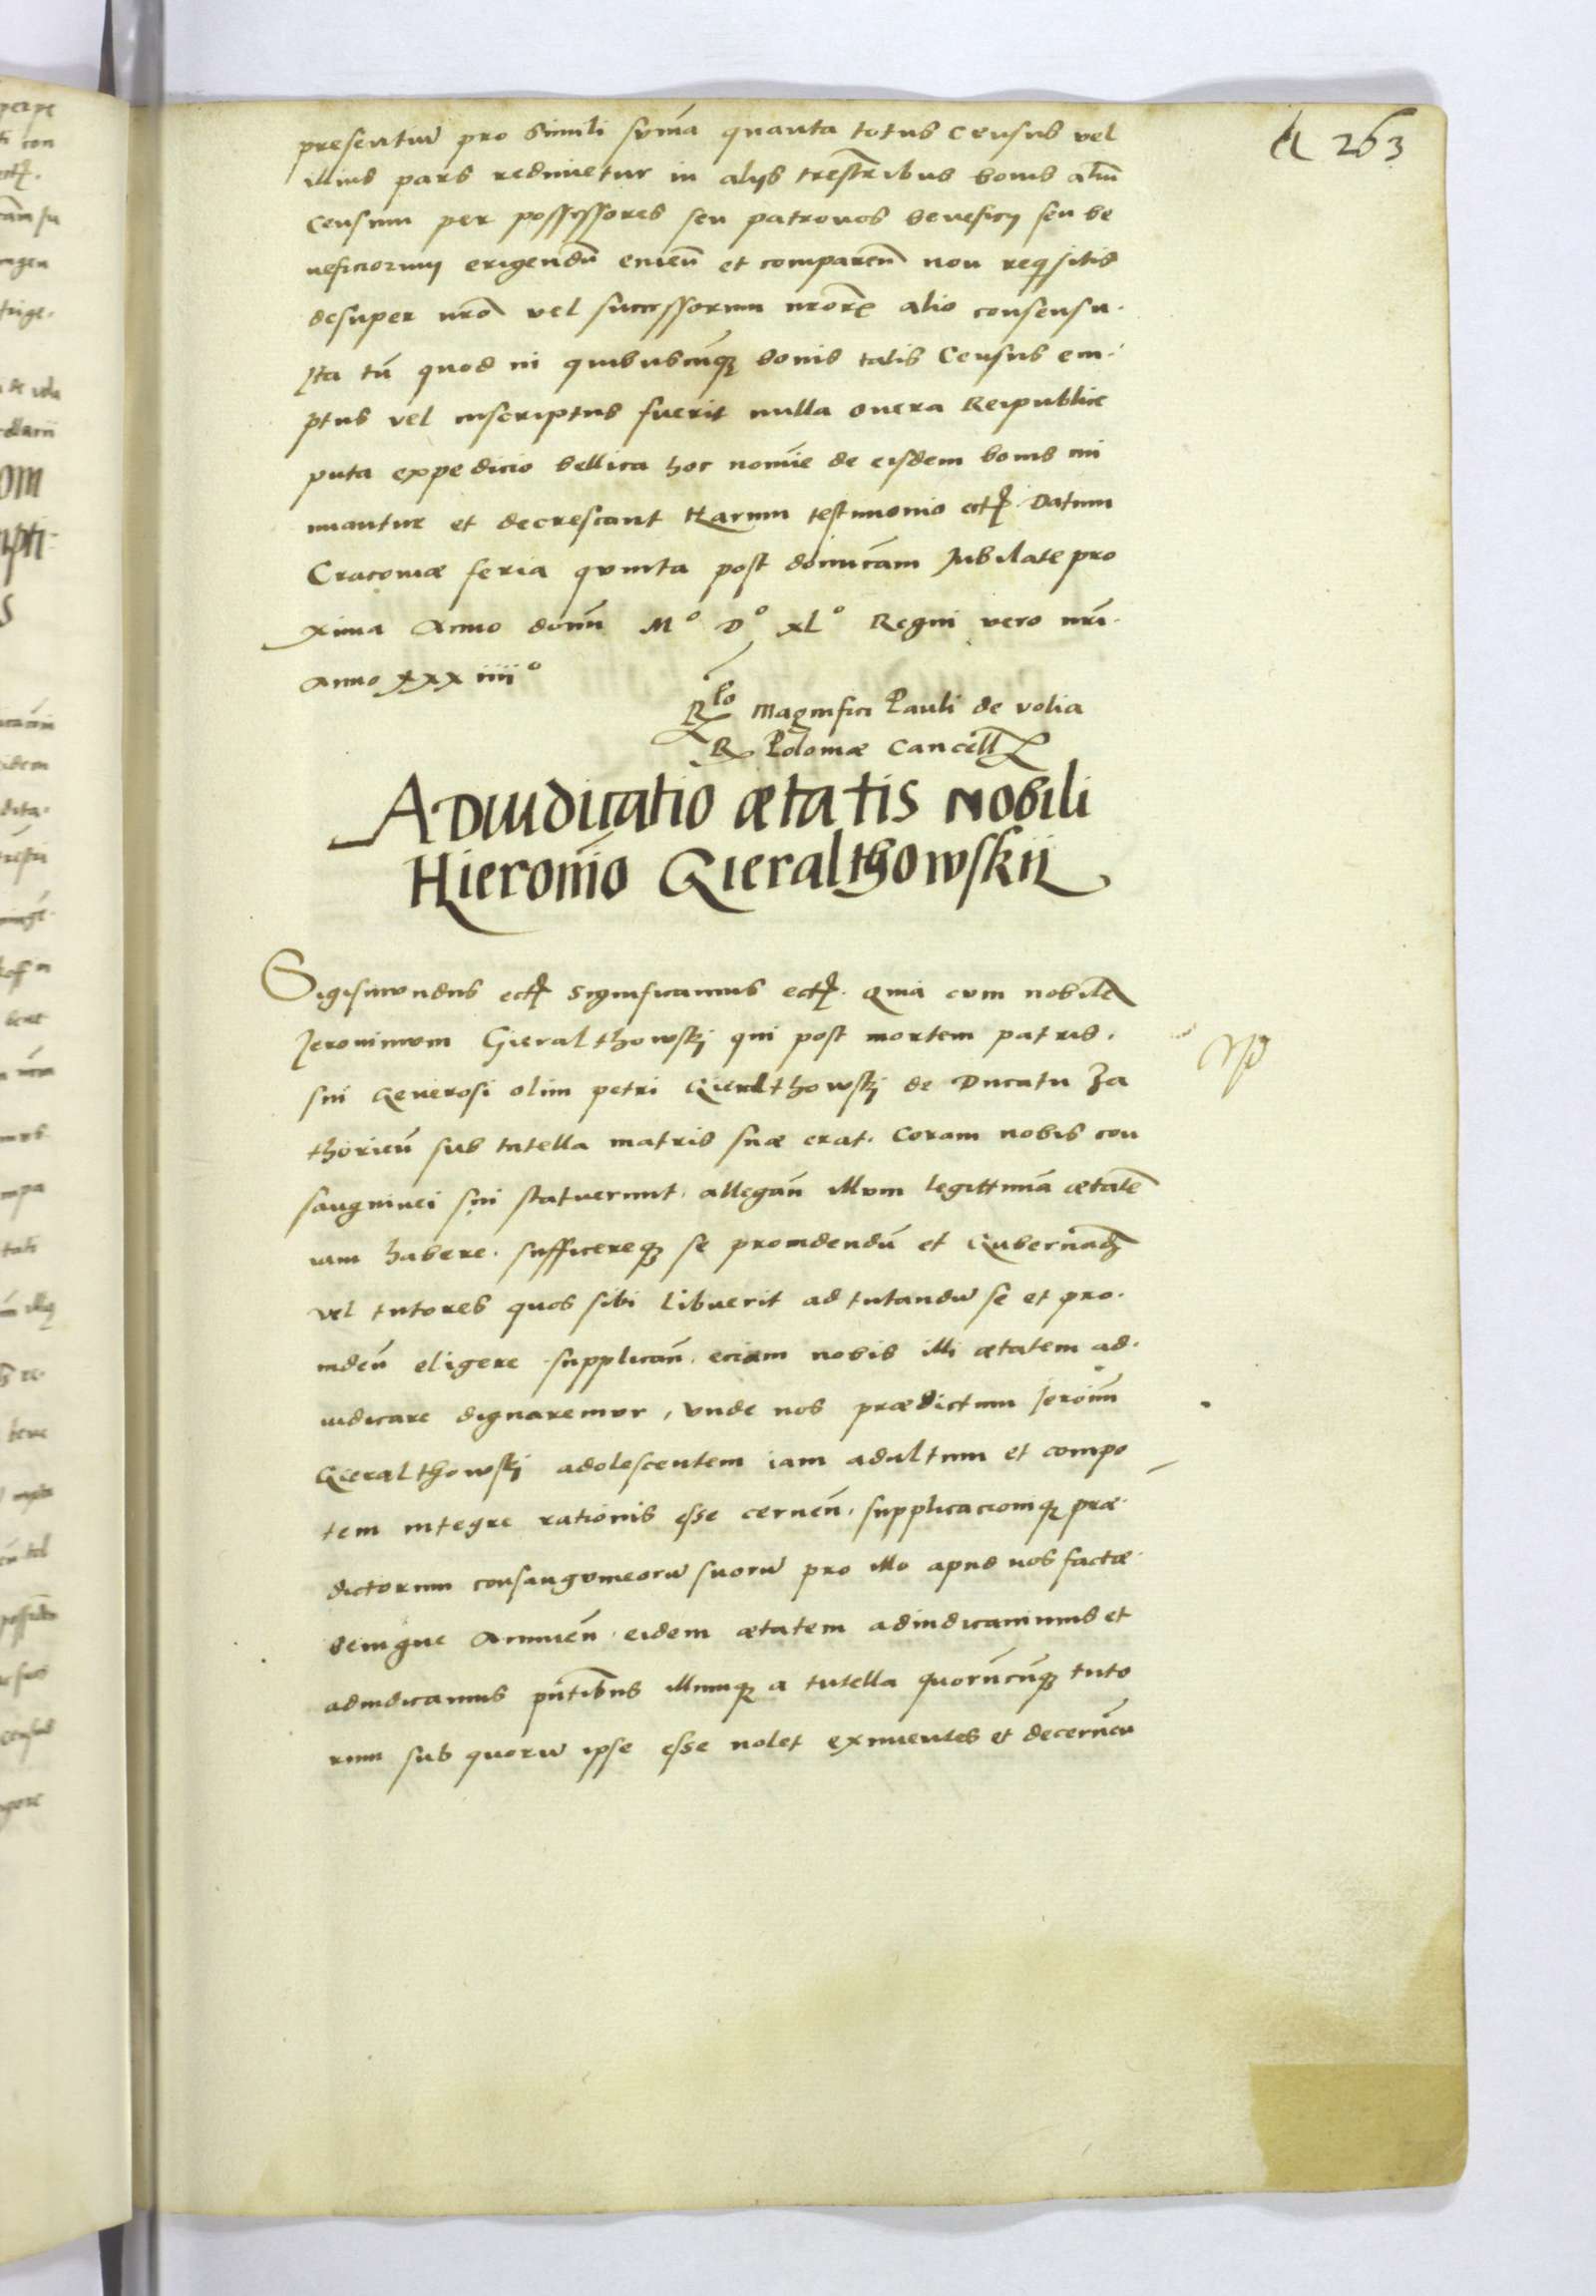 A 263
presentium pro simili sum̄a quanta totus census vel
illius pars redimetur in alijs terrestribus bonis aliū
Censum per possessores seu patronos beneficij seu be
neficiorum erigendū emen̄ et comparen̄ non reqsitis
desuper nrō vel successorum nrōrꝭ alio consensu.
Ita tn̄ quod in quibuscūqꝫ bonis talis Census em-
ptus vel inscriptus fuerit nulla onera Reipublice
puta expedicio bellica hoc nomīe de eisdem bonis mi
nuantur et decrescant Harum testimonio ectꝭ. Datum
Cracoviæ feria qvinta post dominicam Jubilate pro
xima Anno domī Mº Dº XLº Regni vero nrī.
Anno XXXiiiiº
Rlo Magnifici Pauli de volia
R Poloniæ Cancell
Adiudicatio ætatis Nobili
Hieronimo Gieralthowskij
Sigismondus ectꝭ Significamus ectꝭ. Quia cvm nobilem
Jeronimvm Gieralthowskj qui post mortem patris.
sui Generosi olim petri Gieralthowskj de Ducatu Za
thorien̄ sub tutella matris suæ erat. Coram nobis con
sanguinei sui statverunt. allegan̄ illvm legittimā ætatē
iam habere. sufficereqꝫ se providendū et Gubernādꝫ
vel tutores quos sibi libverit ad tutandū se et pro.
viden̄ eligere supplican̄. eciam nobis illi ætatem ad.
iudicare dignaremvr, vnde nos prædictum Jeronimū
Gieralthowskj adolescentem iam adultum et compo
tem integre rationis esse cernen̄. supplicacioniqꝫ præ
dictorum consangvineorū suorū pro illo apud nos factæ
benigne Annuen̄ eidem ætatem adiudicavimus et
adiudicamus pn̄tibus illumqꝫ a tutella quorūcūqꝫ tuto
rum sub quorū ipse esse nolet eximentes et decernen